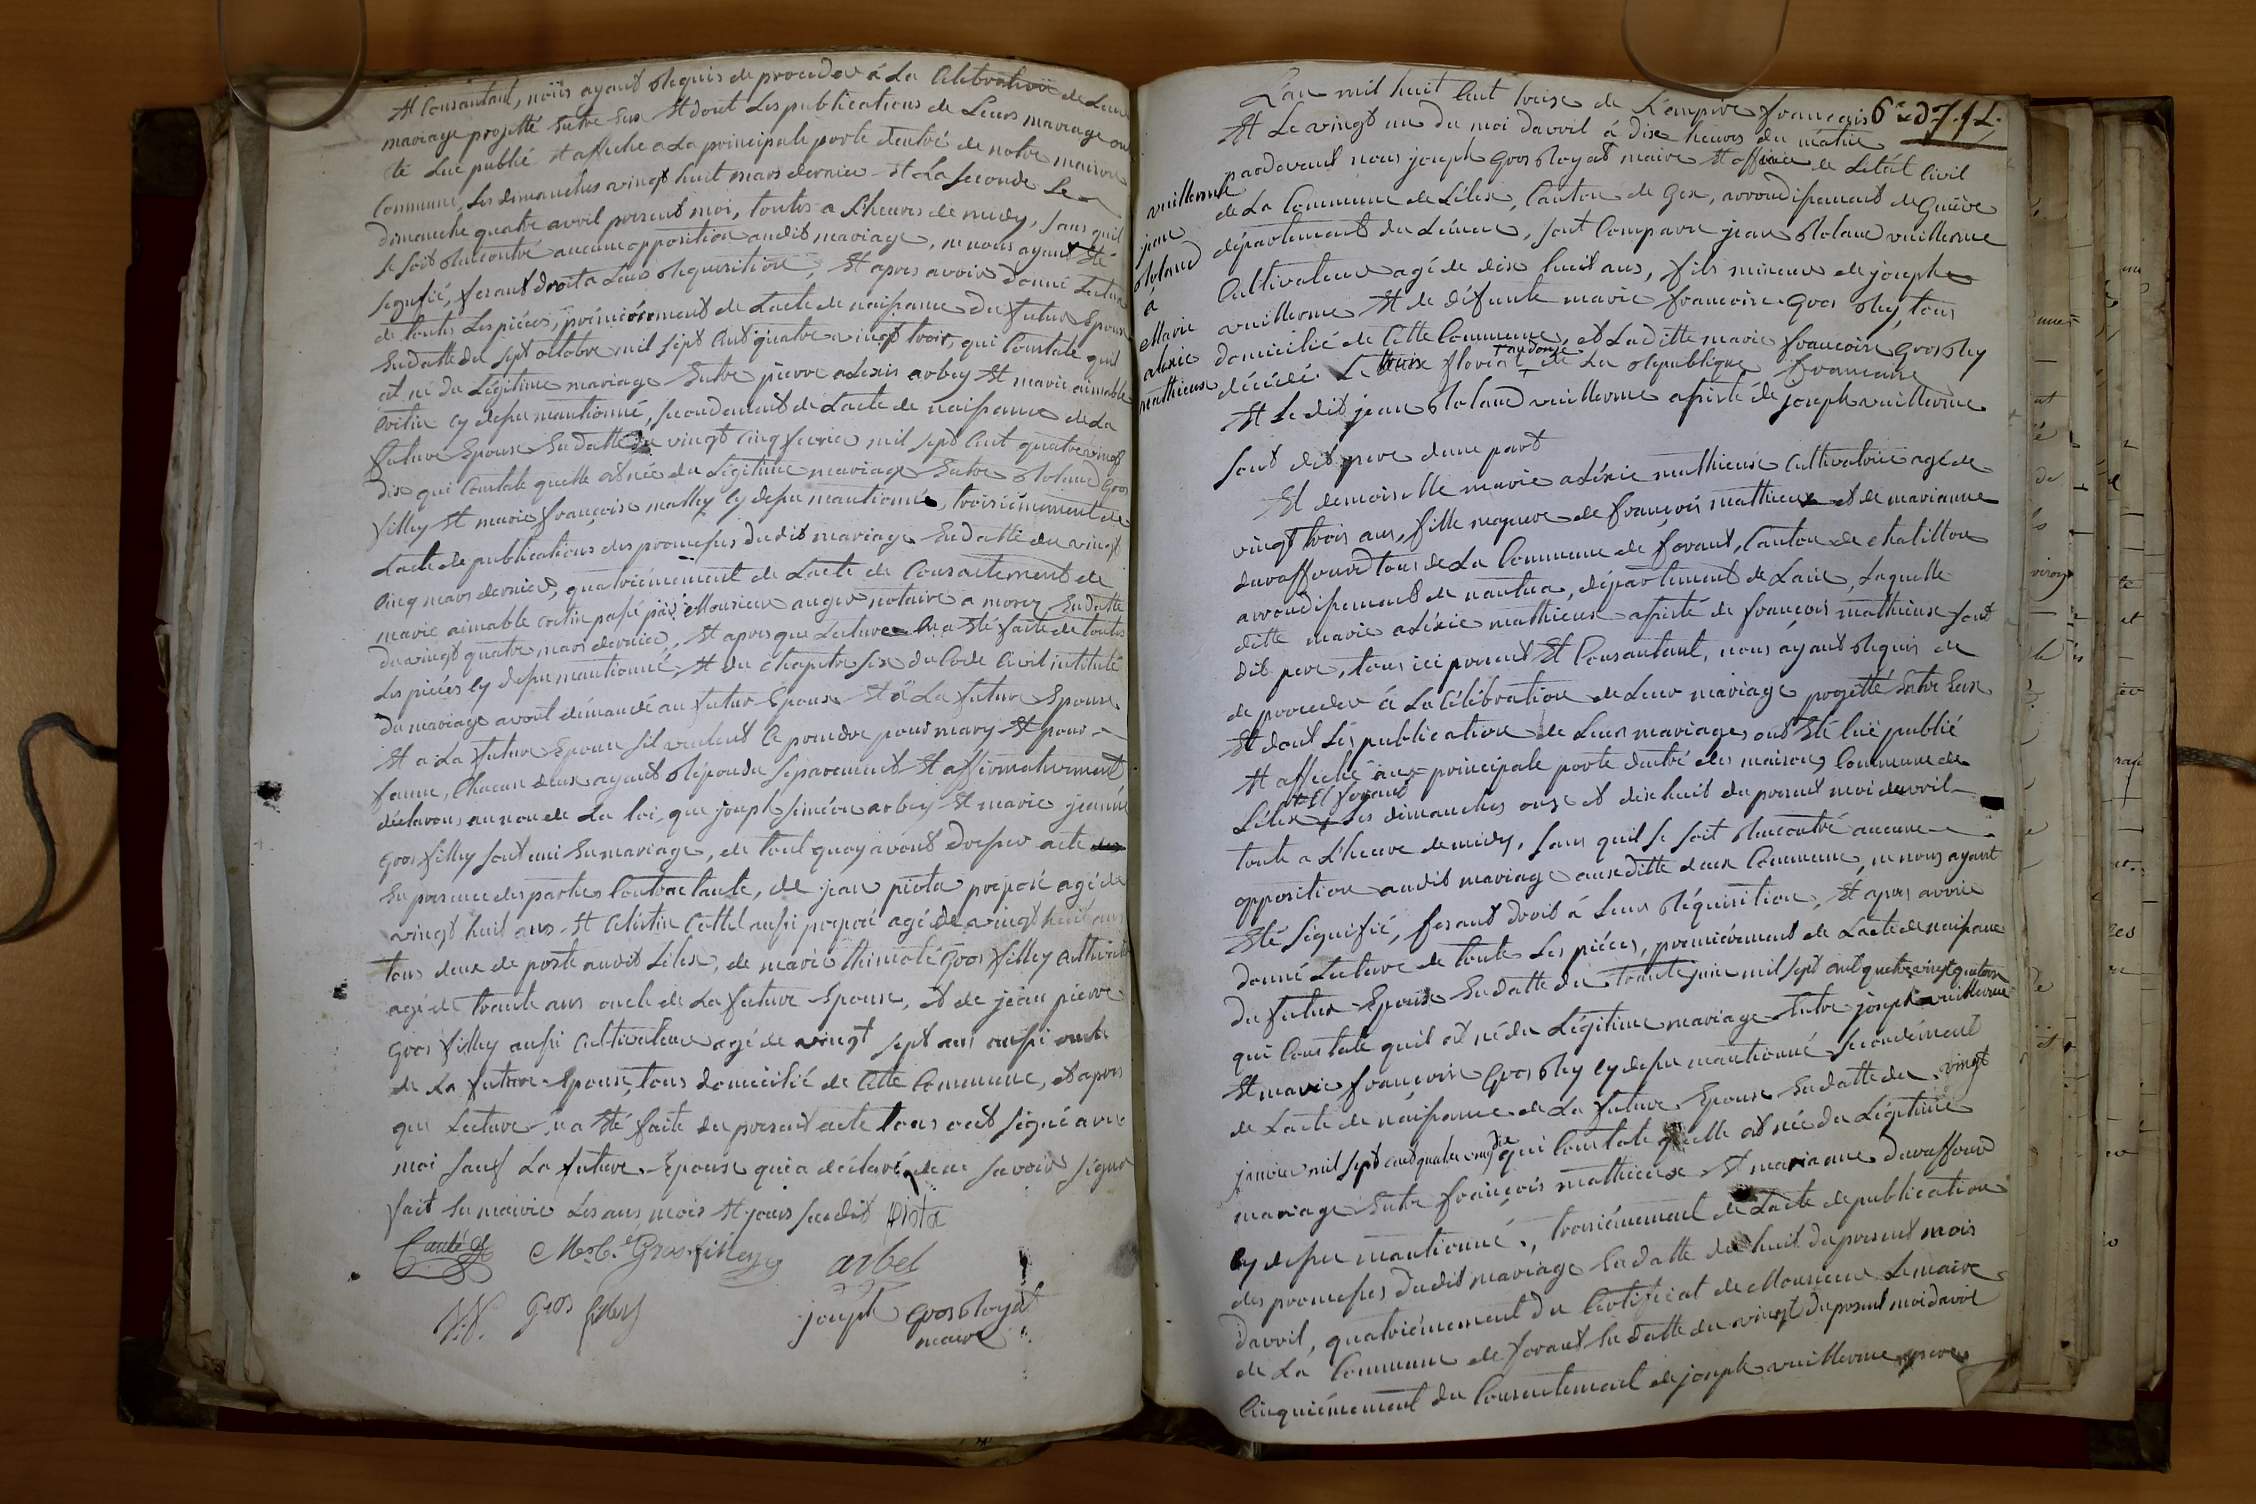 Et Consantant, nous ayant Requis de proceder á La Célébration de Leur
mariage projetté Entre Eux Et dont Les publications de Leurs mariage ont
été Lue publié et affiché a La principale porte dentré de notre maison
Commune, Les dimanches vingt huit mars dernier Et La seconde Le
dimanche quatre avril présent moi, toutes a L'heures de midy, sans quil
se soit Rencontré aucune opposition audit mariage, ne nous ayant Eté
signifié, fesant droit a Leurs Requisition, Et apres avoir donné Lecture
de toutes Les pièces, premièrement de Lacte de naissance du futur Epoux
En datte du sept octobre mil sept Cent quatre vingt trois, qui Constate quil
est né du Légitime mariage Entre pierre alexis arbey Et marie aimable
Cretin cy dessu mantionné, secondement de Lacte de naissance de La
future Epouse En datte du vingt Cinq fevrier mil sept Cent quatre vingt
dix qui Constate quelle est née du Légitime mariage Entre Roland Gros
filley Et marie françoise mathy cy dessu mantionné, troisièmement de
Lacte de publications des promesses dudit mariage En datte du vingt
Cinq mars dernier, quatrièmement de Lacte de Consantement de
marie aimable cretin passé par Monsieur auger notaire a morez En datte
du vingt quatre mars dernier, Et apres que Lecture En a Eté faite de toutes
Les pièces cy dessu mantionné, Et du chapitre six du Code Civil intitulé
du mariage avont démandé au futur Epoux Et a La future Epouse
Et a La future Epouse sil veulent se prendre pour mary Et pour
famme, Chacun deux ayant Répondu séparement Et affirmativement
déclarons au nom de La loi, que joseph siméon arbey Et marie jeanne
Gros filley sont uni En mariage, de tout quoy avont dressé acte
En presence des parties Contractante, de jean piota préposé agé de
vingt huit ans Et Célestin Cottel aussi préposé agé de vingt huit ans
tous deux de poste audit Lélex, de marie thimoté Gros filley Cultivateur
agé de trante ans oncle de La future Epouse, et de jean pierre
Gros filley aussi Cultivateur agé de vingt sept ans aussi oncle
de La future Epouse, tous domicilié de Cette Commune, et apres
que Lecture En a Eté faite du present acte tous ont signé avec
moi sauf La future Epouse qui a déclaré de ne savoir signé
fait En mairie Les ans, mois Et jours susdit piota
M. C. Gros filley arbel
Gros filley joseph Gros Royat
maire
L'an mil huit Cent treise de L'empire francais 6.
Et Le vingt un du moi davril á dix heures du matin
pardevant nous joseph Gros Royat maire Et officier de Létat Civil
de La Commune de Lélex, Canton de Gex, arrondissement de Genève
département du Léman, sont Comparu jean Roland vuillerme
Cultivateur agé de dix huit ans, fils mineur de joseph
vuillerme Et de défunte marie francoise Gros Rey, tous
domicilié de Cette Commune, et Laditte marie francoise Gros Rey
décédé Le treise floréal an douse de La Republique francaise
Et Le dit jean Roland vuillerme assisté de joseph vuillerme
sont dit pere dune part
vuillerme
jean
Roland
a
Marie
alexie
mathieux
Et demoiselle marie alexie mathieux Cultivatrice agé de
vingt trois ans, fille majeure de françois mathieux et de marianne
duraffourd tous de La Commune de forant, Canton de chatillon
arrondissement de nantua, département de Lain, Laquelle
ditte marie aléxie mathieux assisté de françois mathieux sont
dit pere, tous ici present Et Consantant, nous ayant Requis de
de proceder á La Célébration de Leur mariage projetté Entre Eux
Et dont Les publication de Leurs mariages ont Eté lue publié
Et affiché aux principale porte dentré des maisons Commune de
Lélex Et forant Les dimanches onze et dix huit du present moi davril
toute a L'heure de midy, sans quil se soit Rencontré aucune
opposition audit mariage aux ditte deux Commune, ne nous ayant
Eté signifié, fesant droit á Leurs Réquisition, Et apres avoir
donné Lecture de toute Les pièces, premièrement de Lacte de naissance
du futur Epoux En datte du trante juin mil sept cent quatre vingt quatorze
qui Constate quil est né du Légitime mariage Entre joseph vuillerme
Et marie françoise Gros Rey cy dessu mantionné secondement
de Lacte de naissance de La future Epouse En datte du vingt
janvier mil sept cent quatre vingt dix qui Constate quelle est née du Légitime
mariage Entre françois mathieux Et marianne duraffourd
cy dessu mantionné, troisièmement de Lacte de publication
des promesses dudit mariage En datte du huit du present mois
davril, quatrièmement du Certificat de Monsieur Le maire
de La Commune de forant En datte du vingt du present moi davril
Cinquièmement du Consentement de joseph vuillerme pere